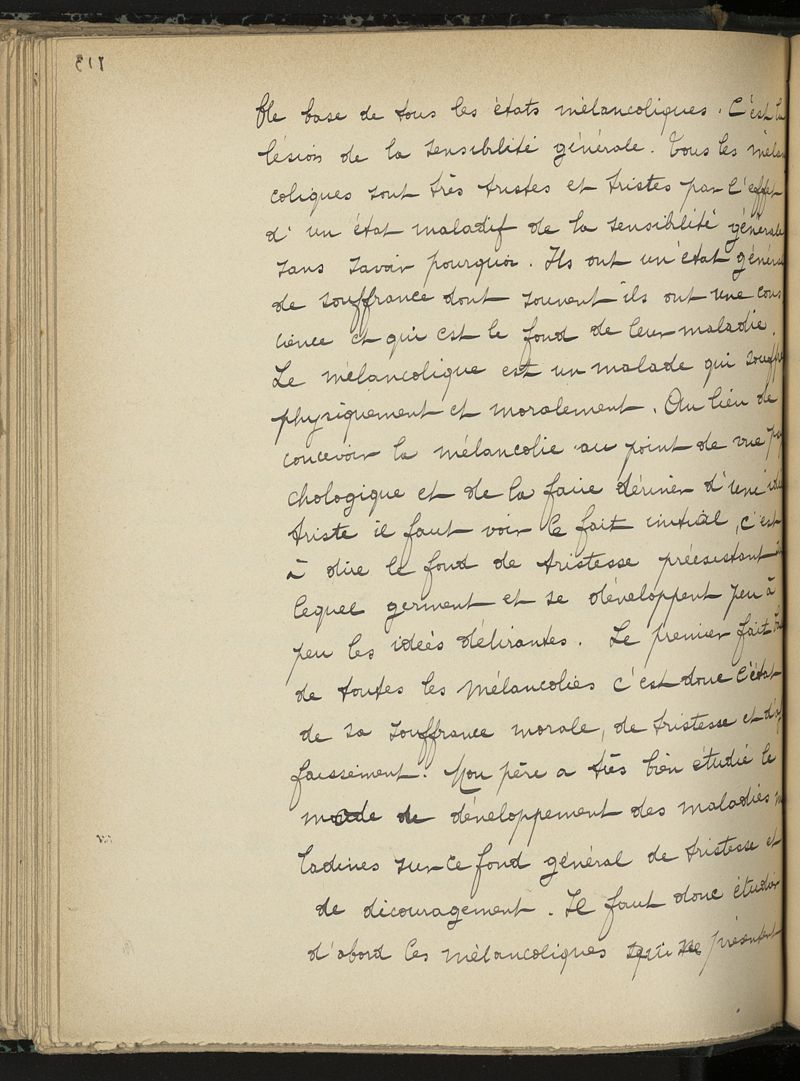 ble base de tous les états mélancoliques. C'est la
lésion de la sensibilité générale. Tous les mélan
coliques sont très tristes et tristes par l'effet
d'un état maladif de la sensibilité générale
sans savoir pourquoi. Ils ont un état généra
de souffrance dont souvent ils ont une cons
cience et qui est le fond de leur maladie.
Le mélancolique est un malade qui souffre
physiquement et moralement. Au lieu de
concevoir la mélancolie au point de vue psy
chologique et de la faire dériver d'une idée
triste il faut voir le fait initial, c'est
à dire le fond de tristesse préexistant
lequel germent et se développent peu à
peu les idées délirantes. Le premier fait
de toutes les mélancolies c'est donc l'état
de sa souffrance morale, de tristesse et d'af
faissement. Mon père a très bien étudié le
mode de développement des maladies
ladives sur ce fond général de tristesse et
de découragement. Il faut donc étudier
d'abord les mélancoliques qui ne présentent